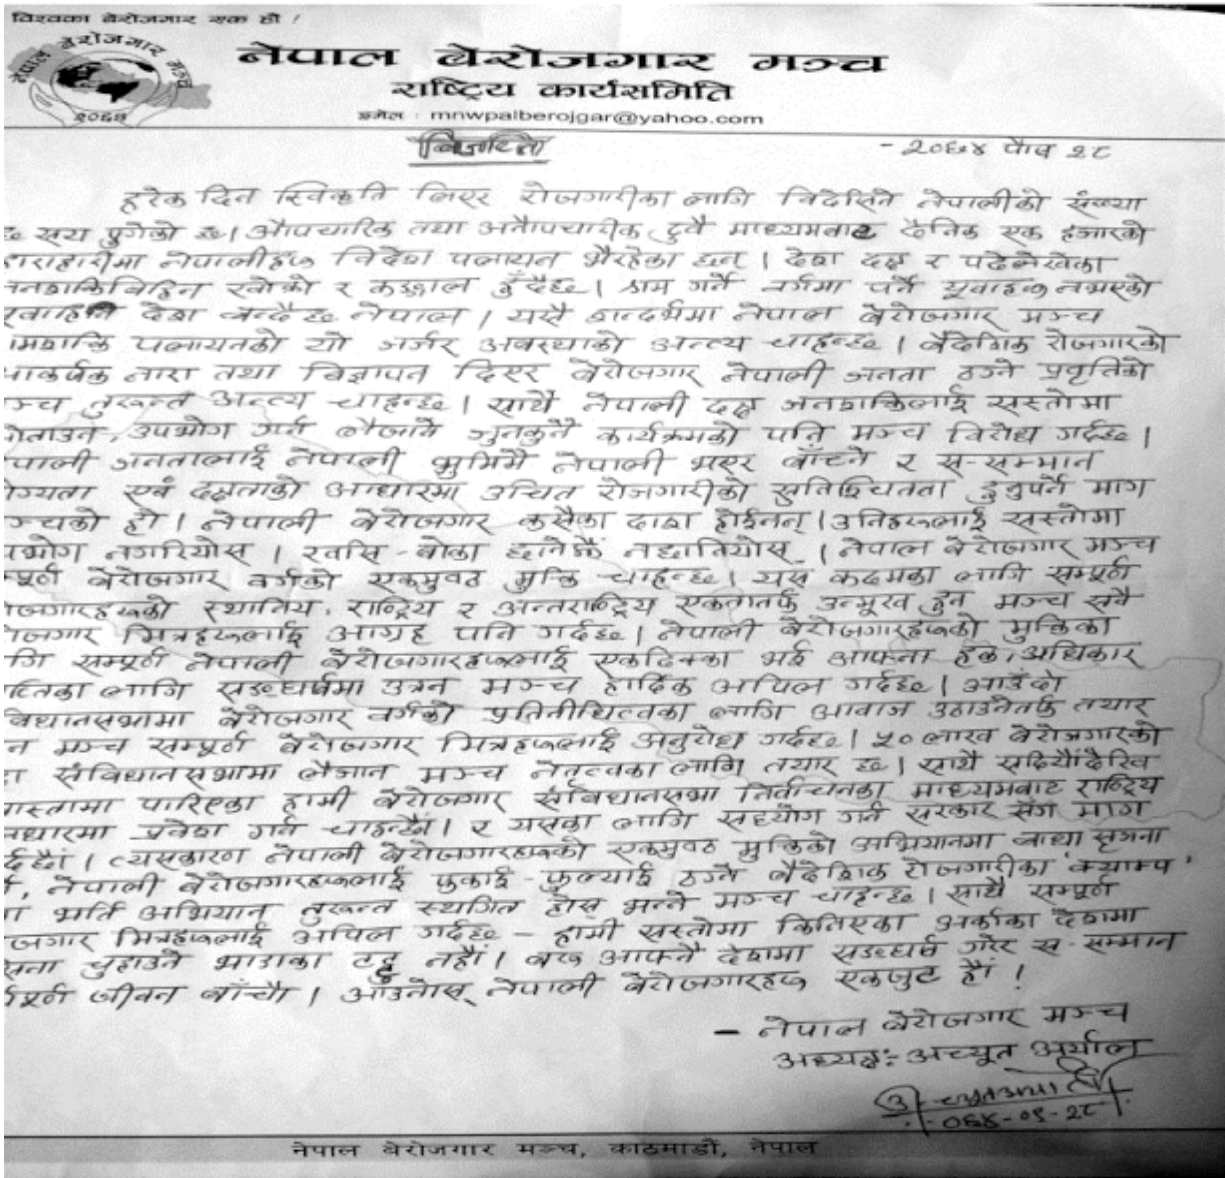 विश्वका बेरोजगार एक हौं !
नेपाल बेरोजगार मञ्च
२०६४
नेपाल बेरोजगार मञ्च
राष्ट्रिय कार्यसमिति
इमेल : mnwpalberojgar@yahoo.com
विज्ञप्ति
- २०६४ पौष २८
हरेक दिन स्विकृति लिएर रोजगारीका लागि विदेसिने नेपालीको संख्या
सय पुगेको छ। औपचारिक तथा अनौपचारिक दुवै माध्यमबाट दैनिक एक हजारको
हाराहारीमा नेपालीहरू विदेश पलायन भैरहेका छन् । देश दक्ष र पढेलेखेका
खोक्रो र कङ्गाल हुँदैछ। काम गर्ने उर्जामा पर्ने यूवाहरू नभएको
देश बन्दैछ नेपाल । यसै सन्दर्भमा नेपाल बेरोजगार मञ्च
पलायनको यो जर्जर अवस्थाको अन्त्य चाहन्छ । बैदेशिक रोजगारको
आकर्षक नारा तथा विज्ञापन दिएर बेरोजगार नेपाली जनता ठग्ने प्रवृतिको
मञ्च तुरून्त अन्त्य चाहन्छ। साथै नेपाली दक्ष जनशक्तिलाई सस्तोमा
उपभोग गर्न लैजाने जुनकुनै कार्यक्रमको पनि मञ्च विरोध गर्दछ।
नेपाली जनतालाई नेपाली भुमिमै नेपाली भएर बाँच्ने र स-सम्मान
योग्यता एवं दक्षताको आधारमा उचित रोजगारीको सुनिश्चितता हुनुपर्ने माग
मञ्चको हो। नेपाली बेरोजगार कसैका दास होईनन्। उनिहरूलाई सस्तोमा
उपभोग नगरियोस् । खसि-बोका छानेझैं नछानियोस् । नेपाल बेरोजगार मञ्च
सम्पूर्ण बेरोजगार वर्गको एकमुष्ठ मुक्ति चाहन्छ। यस कदमका लागि सम्पूर्ण
बेरोजगारहरूको स्थानिय, राष्ट्रिय र अन्तराष्ट्रिय एकतातर्फ उन्मूख हुन मञ्च सबै
बेरोजगार मित्रहरूलाई आग्रह पनि गर्दछ। नेपाली बेरोजगारहरूको मुक्तिका
लागि सम्पूर्ण नेपाली बेरोजगारहरूलाई एकढिक्का भई आफ्ना हक, अधिकार
प्राप्तिका लागि सङघर्षमा उत्रन मञ्च हार्दिक अपिल गर्दछ। आउँदो
संविधानसभामा बेरोजगार वर्गको प्रतिनीधित्वका लागि आवाज उठाउनेतर्फ तयार
हुन मञ्च सम्पूर्ण बेरोजगार मित्रहरूलाई अनुरोध गर्दछ। ५० लाख बेरोजगारको
संविधानसभामा लैजान मञ्च नेतृत्वका लागि तयार छ। साथै सदियौंदेखि
पारिएका हामी बेरोजगार संविधानसभा निर्वाचनका माध्यमबाट राष्ट्रिय
मूलधारमा प्रवेश गर्न चाहन्छौं। र यसका लागि सहयोग गर्न सरकार सँग माग
गर्दछौं। त्यसकारण नेपाली बेरोजगारहरूको एकमुष्ठ मुक्तिको अभियानमा बाधा सृजना
नेपाली बेरोजगारहरूलाई फुकाई-फुल्याई ठग्ने बैदेशिक रोजगारीका 'क्याम्प'
भर्ति अभियान तुरून्त स्थगित होस् भन्ने मञ्च चाहन्छ। साथै सम्पूर्ण
बेरोजगार मित्रहरूलाई अपिल गर्दछ - हामी सस्तोमा किनिएका अर्काका देशमा
पसिना चुहाउने भाडाका टट्टु नहौं। बरू आफ्नै देशमा सङघर्ष गरेर स-सम्मान
जीवन बाँचौं। आउनोस् नेपाली बेरोजगारहरू एकजुट हौं !
- नेपाल बेरोजगार मञ्च
अध्यक्ष:- अच्यूत अर्याल
०६४-०९-२८
नेपाल बेरोजगार मञ्च, काठमाडौं, नेपाल